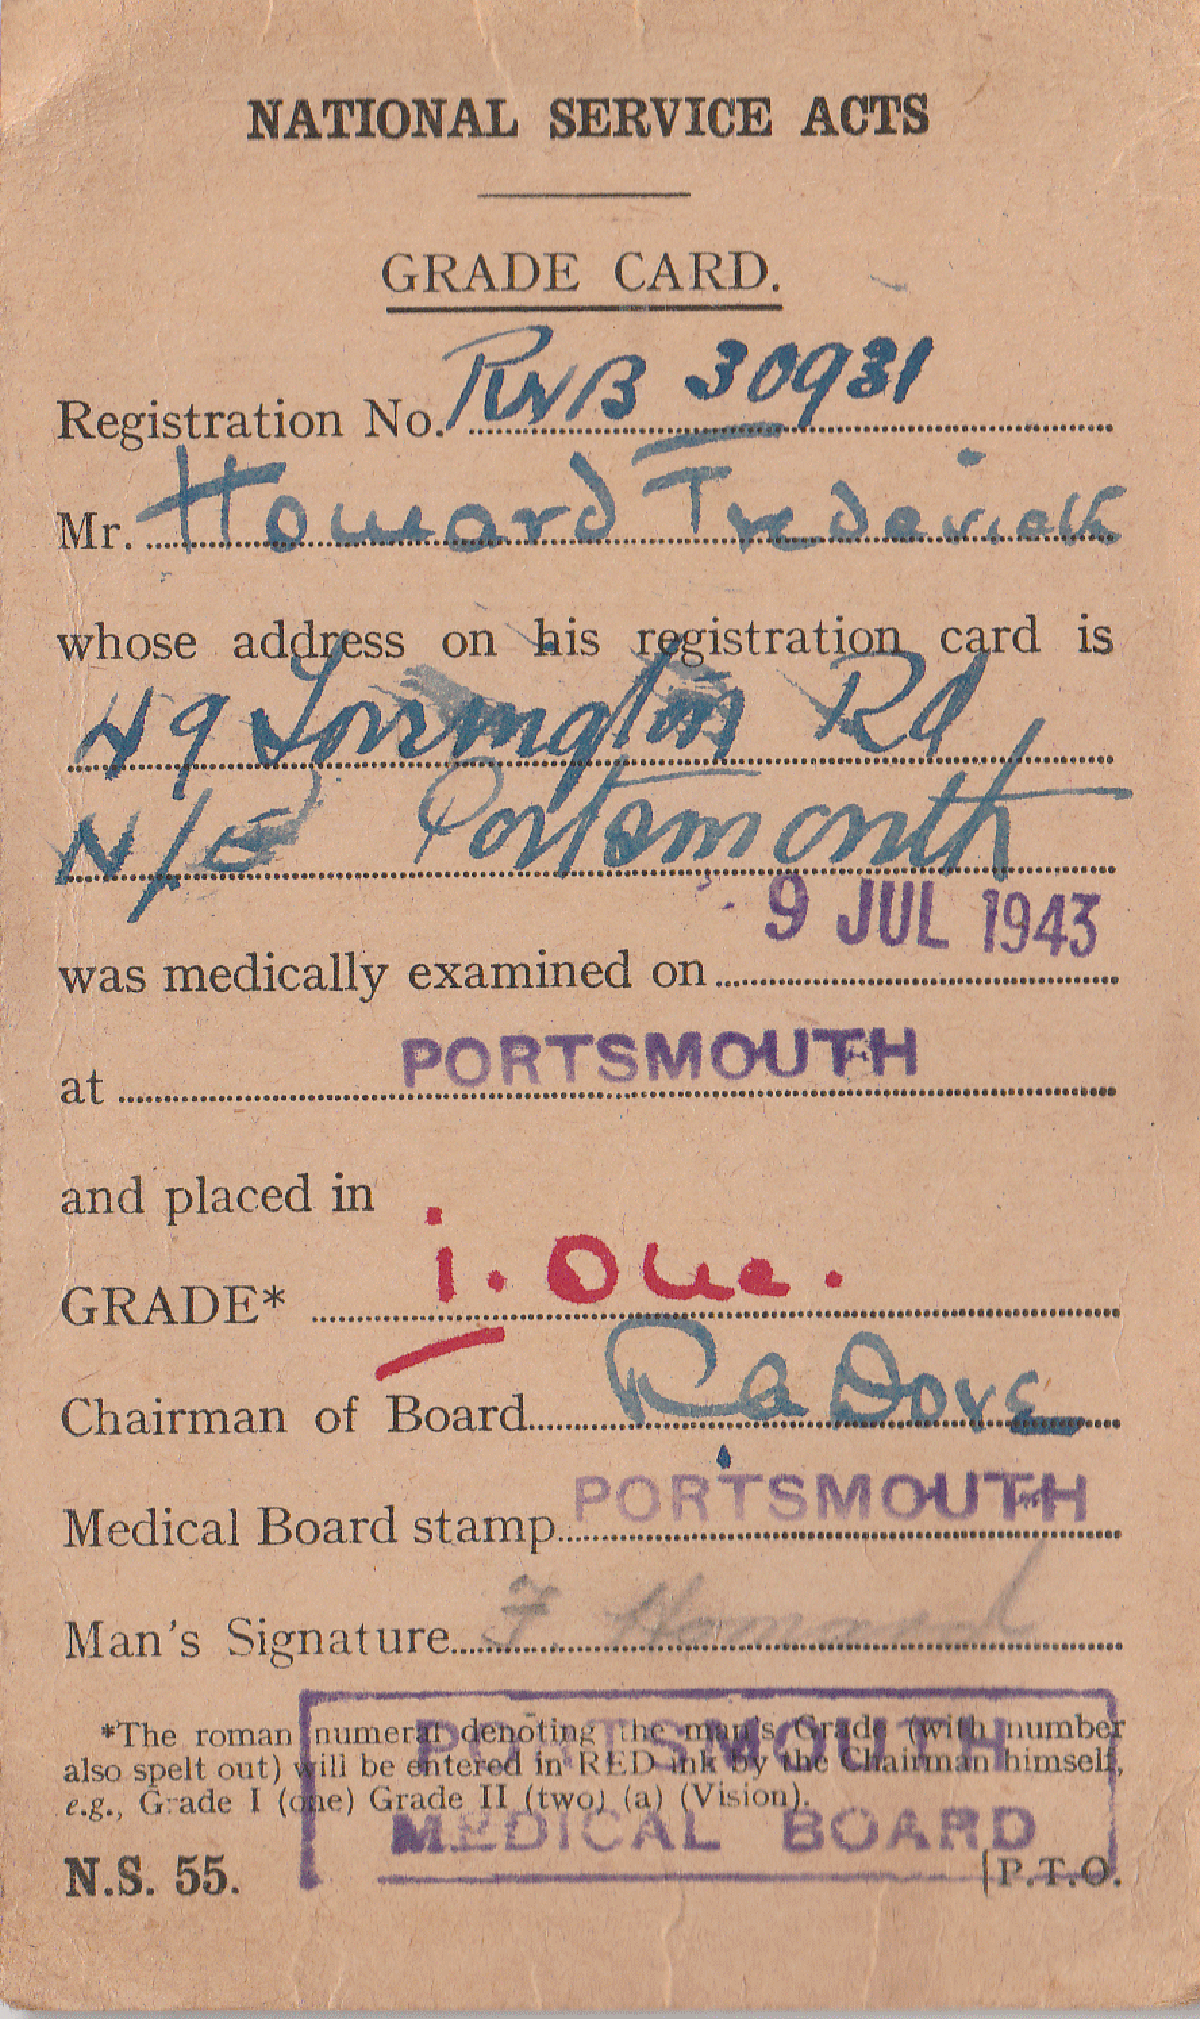 NATIONAL SERVICE ACTS
GRADE CARD.
Registration No. RNB 30931
Mr. Howard Frederick
whose address on his registration card is
49 Lovington Rd
N/E Portsmouth
9 JUL 1943
was medically examined on
at PORTSMOUTH
and placed in
GRADE* i. One.
Chairman of Board R a Dove
Medical Board stamp PORTSMOUTH
Man's Signature F. Howard
*The roman numeral denoting the man's Grade (with number
also spelt out) will be entered in RED ink by the Chairman himself,
e.g., Grade I (one) Grade II (two) (a) (Vision).
PORTSMOUTH
MEDICAL BOARD
N.S. 55. [P.T.O.